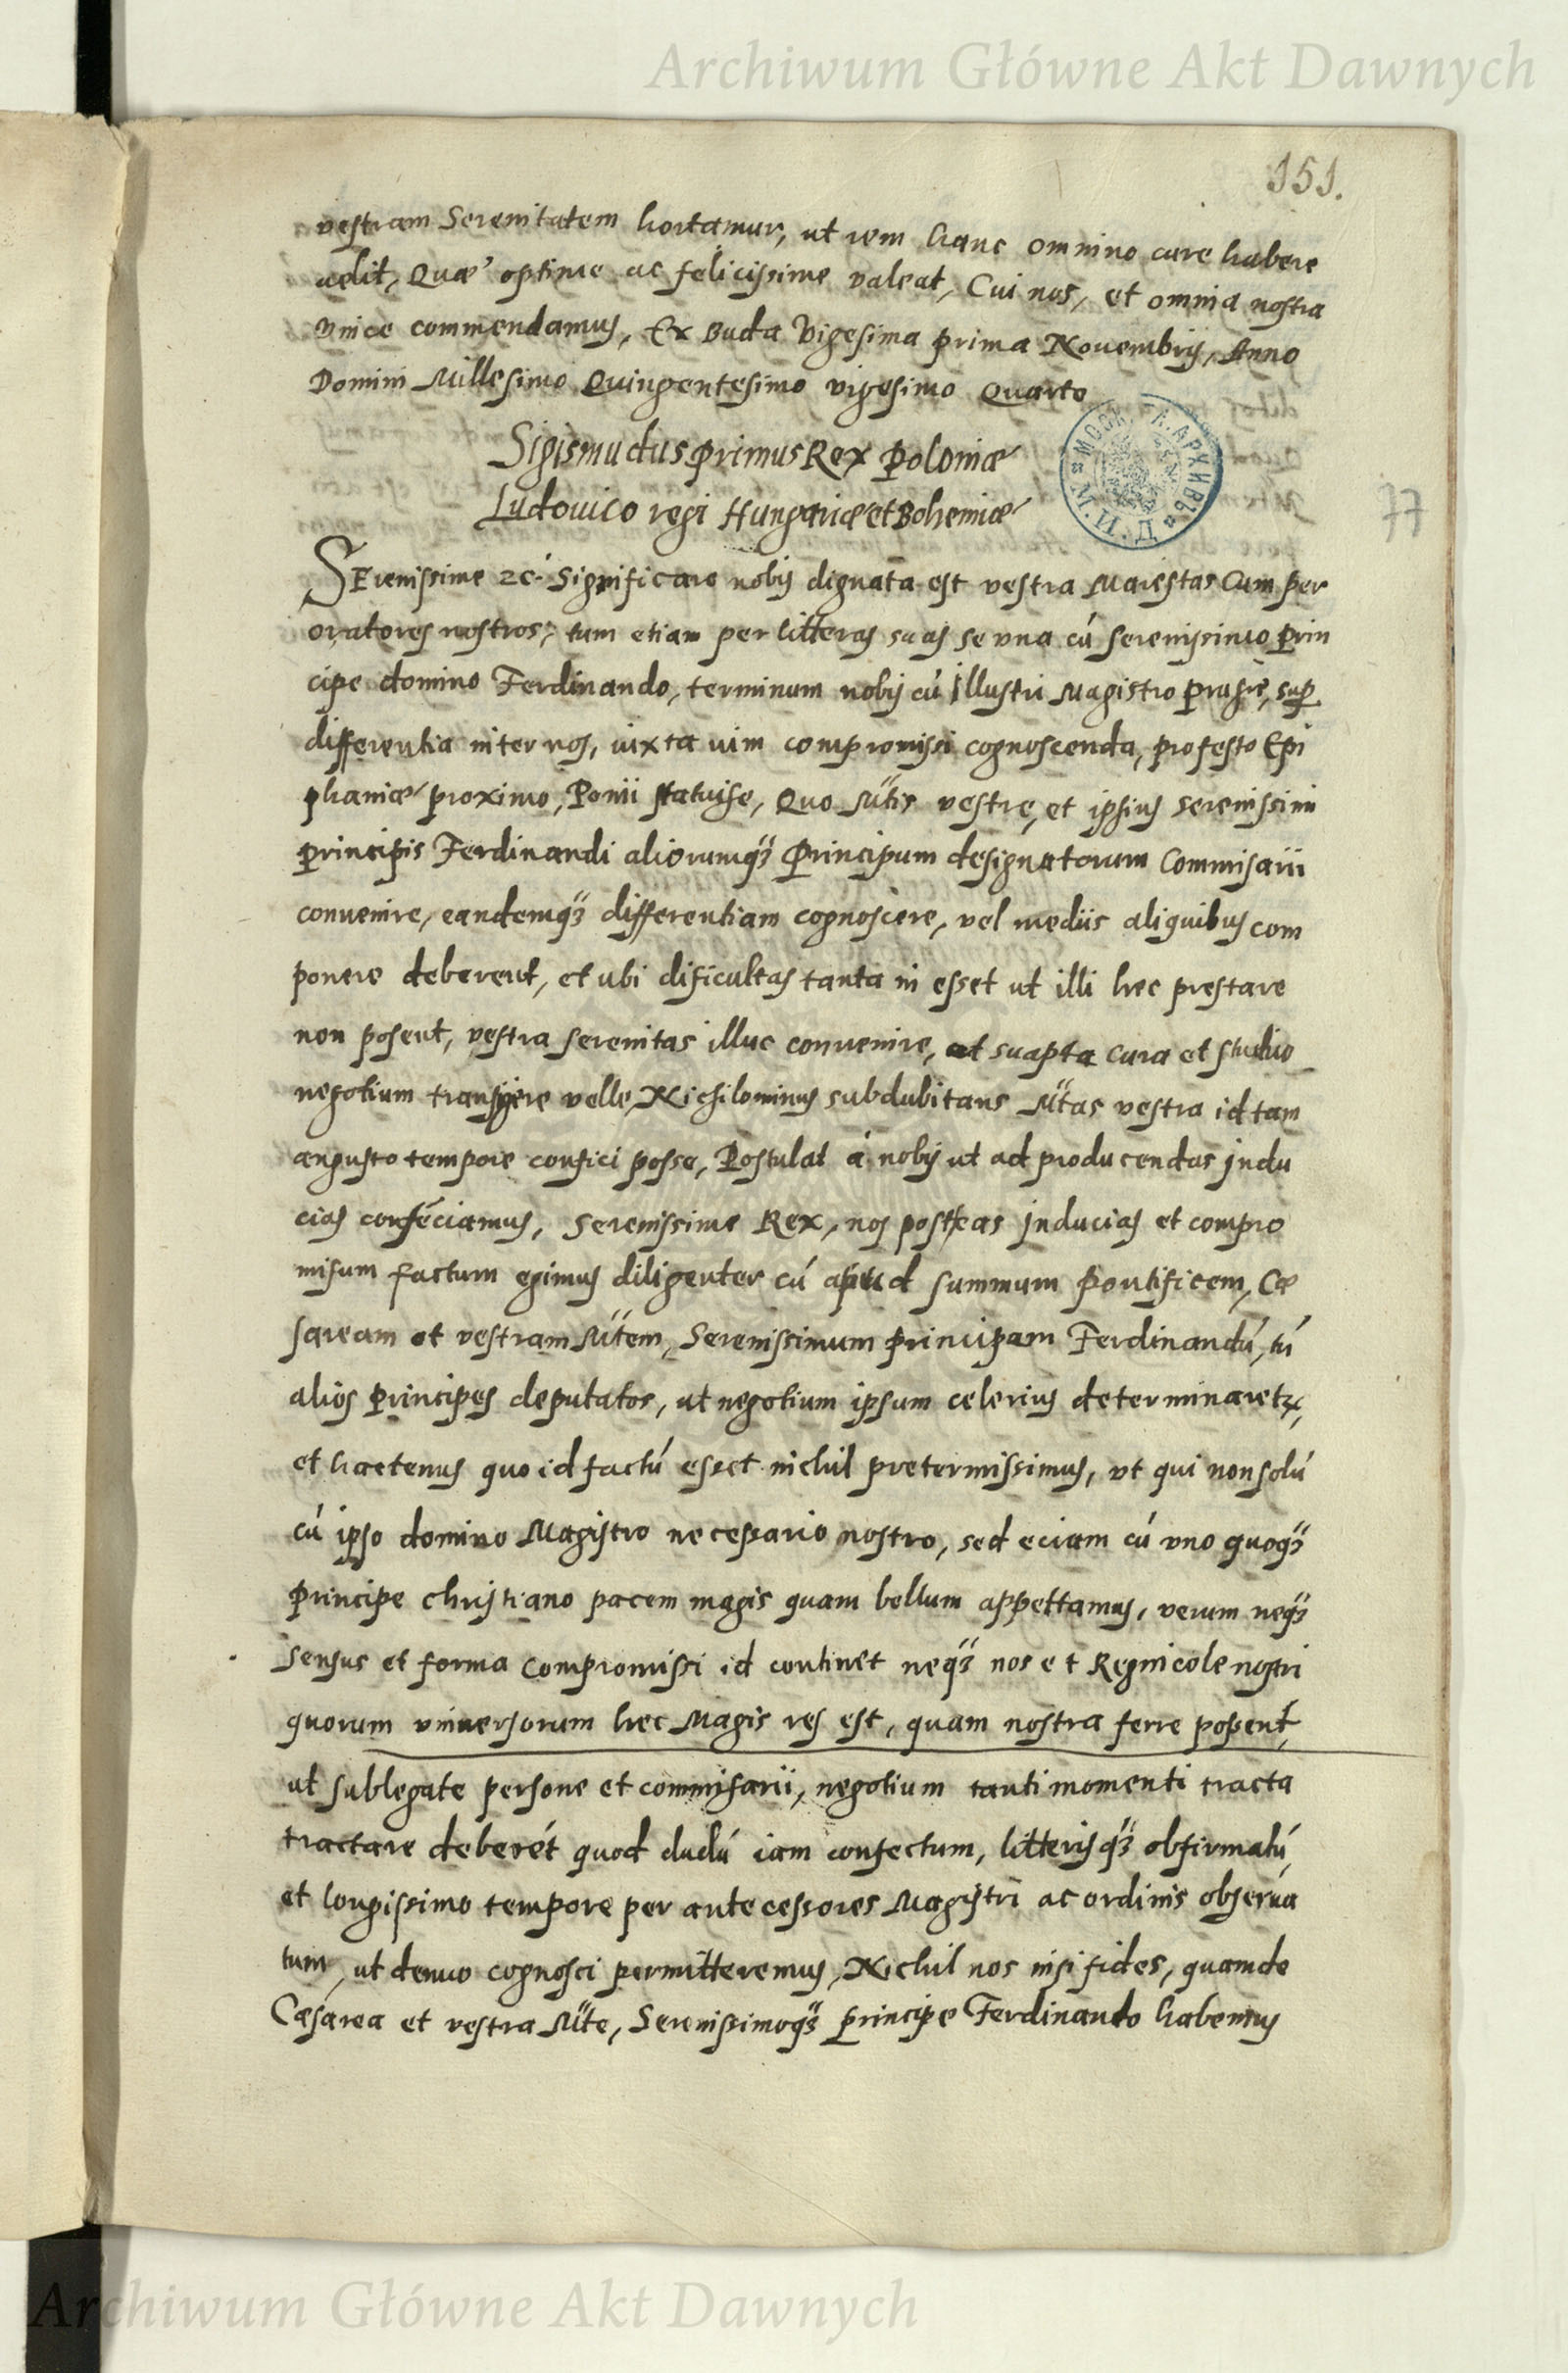 Archiwum Główne Akt Dawnych
151.
vestram Serenitatem hortamur, ut rem hanc omnino cure habere
velit, Quæ optime ac felicissime valeat, Cui nos, et omnia nostra
vnice commendamus, Ex Buda Vigesima prima Nouembrij, Anno
Domini Millesimo Quingentesimo vigesimo Quarto
Sigismudus primus Rex Poloniæ
Ludouico regi Hungariæ et Bohemiæ
77
SErenissime zc. Significare nobis dignata est vestra Maiestas Cum per
oratores nostros, tum etiam per litteras suas se vna cú serenissimo prin
cipe domino Ferdinando, terminum nobis cú illustri Magistro prusie, sup
differentia inter nos, iuxta uim compromissi cognoscenda, pro festo Epi
phaniæ proximo, Ponii statuise, Quo Mtis vestre, et ipsius serenissimi
principis Ferdinandi aliorumqȝ Principum designatorum Commisarii
conuenire, eandemqȝ differentiam cognoscere, vel mediis aliquibus com
ponere deberent, et ubi dificultas tanta in esset ut illi hec prestare
non posent, vestra serenitas illuc conuenire, et suapta cura et studio
negotium transigere velle, Nichilominus subdubitans Mtas vestra id tam
angusto tempore confici posse, Postulat á nobis ut ad producendas indu
cias conseciamus, Serenissime Rex, nos post eas inducias et compro
misum factum egimus diligenter cú apud summum pontificem, Cæ
saream et vestram Mtem, Serenissimum principem Ferdinandú, tú
alios Principes deputatos, ut negotium ipsum celerius determinaretr,
et hactenus quo id factú esset nichil pretermissimus, vt qui non solú
cú ipso domino Magistro necessario nostro, sed eciam cú vno quoqȝ
principe christiano pacem magis quam bellum appettamus, verum neqȝ
sensus et forma compromissi id continet neqȝ nos et Regnicole nostri
quorum vniuersorum hec Magis res est, quam nostra ferre posent,
ut sublegate persone et commisarii, negotium tanti momenti tracta
tractare deberét quod dudú iam confectum, litterisqȝ obfirmatú,
et longissimo tempore per antecessores Magistri ac ordinis obserua
tum, ut denuo cognosci permitteremus, Nichil nos nisi fides, quam de
Cæsarea et vestra Mte, Serenissimoqȝ principe Ferdinando habemus
Archiwum Główne Akt Dawnych